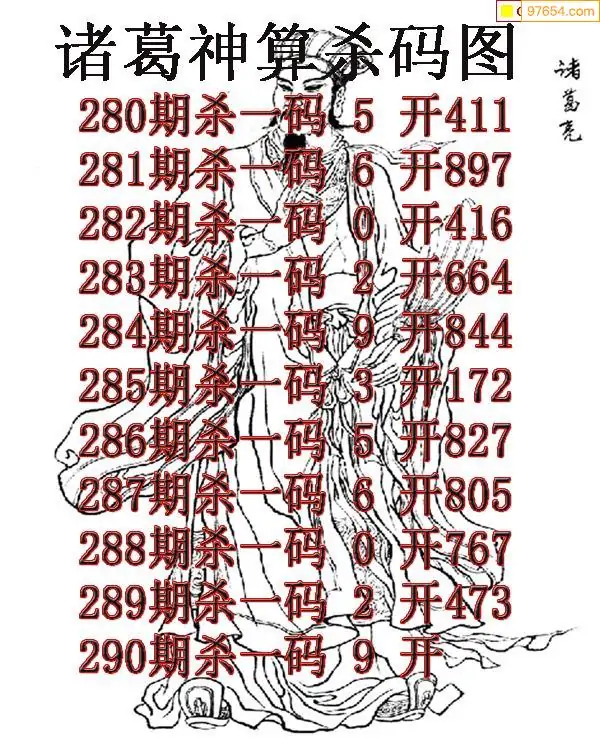 97654.com
诸葛神算杀码图
诸葛亮
280期杀一码 5 开411
281期杀一码 6 开897
282期杀一码 0 开416
283期杀一码 2 开664
284期杀一码 9 开844
285期杀一码 3 开172
286期杀一码 5 开827
287期杀一码 6 开805
288期杀一码 0 开767
289期杀一码 2 开473
290期杀一码 9 开